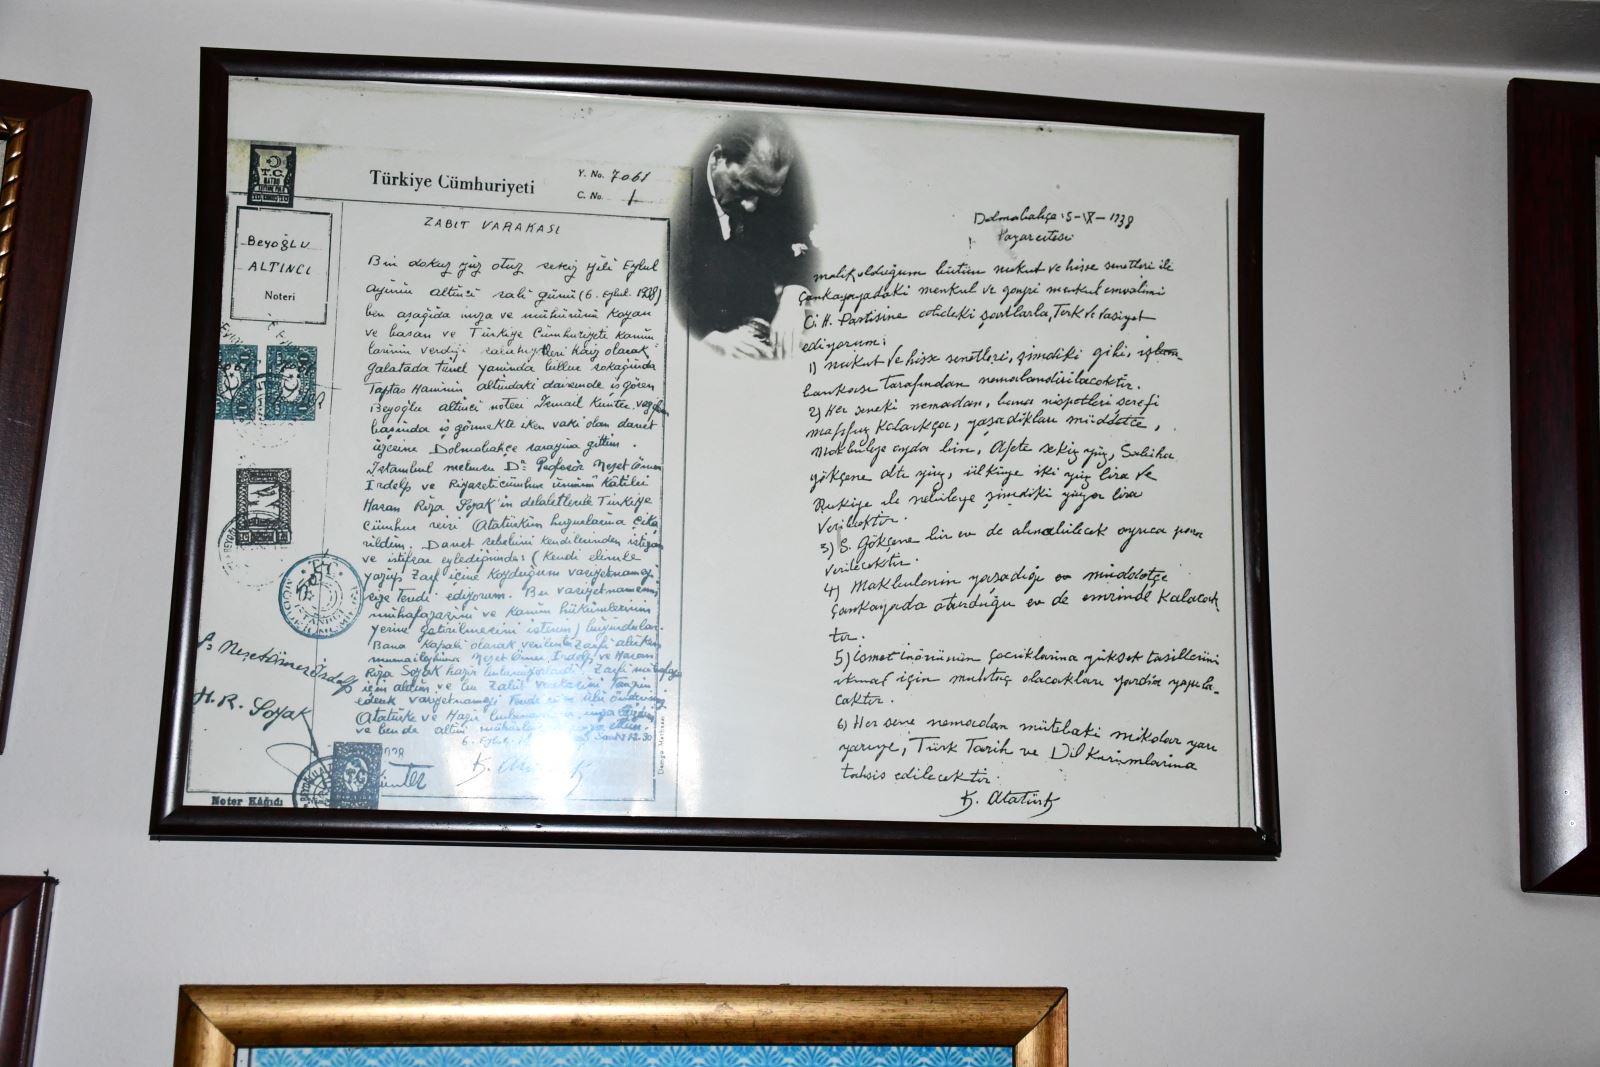 Türkiye Cümhuriyeti
Y. No. 7061
C. No. 1
T.C.
BEYOĞLU
ALTINCI
Noteri
ZABIT VARAKASI
Bin dokuz yüz otuz sekiz yılı Eylul
ayının altıncı salı günü (6. Eylul. 1938)
ben aşağıda imza ve mühürünü koyan
ve basan ve Türkiye Cümhuriyeti kanun
larının verdiği salahiyetleri haiz olarak
galatada tünel yanında billur sokağında
Taptas Hanının altındaki dairemde iş gören
Beyoğlu altıncı noteri İsmail Kunter
başında iş görmekte iken vaki olan davet
üzerine Dolmabahçe sarayına gittim.
İstanbul mebusu Dr. Profesör Neşet Ömer
İrdelp ve Riyaseticümhur umumi kâtibi
Hasan Rıza Soyak'ın delaletlerile Türkiye
Cümhur reisi Atatürkün huzurlarına çıka
rıldım. Davet sebebini kendilerinden istizan
ve istifsar eylediğimde: (Kendi elimle
yazıp zarf içine koyduğum vasiyetnameyi
size tevdi ediyorum. Bu vasiyetnamemin
muhafazasını ve kanun hükümlerinin
yerine getirilmesini isterim) buyurdular.
Bana kapalı olarak verilen zarfı alırken
Neşet Ömer İrdelp ve Hasan
Rıza Soyak hazır
için aldım ve bu zabıt varakasını tanzim
ederek vasiyetnameyi
Atatürke ve
ve ben de
6. Eylul.
K. Atatürk
Dr Neşet Ömer İrdelp
H. R. Soyak
Kunter
T.C.
Noter Kâğıdı
Damga Matbaası
Dolmabahçe 5-IX-1938
Pazartesi
malik olduğum bütün nukut ve hisse senetleri ile
Çankayadaki menkul ve gayri menkul emvalimi
C. H. Partisine atideki şartlarla, Terk ve vasiyet
ediyorum:
1) nukut ve hisse senetleri, şimdiki gibi, iş
bankası tarafından nemalandırılacaktır.
2) Her seneki nemadan, bana nispetleri şerefi
mahfuz kaldıkça, yaşadıkları müddetce,
Makbuleye ayda bin, Afete sekiz yüz, Sabiha
gökçene altı yüz, ülküye iki yüz lira ve
Rukiye ile nebileye şimdiki yüzer lira
verilecektir.
3) S. Gökçene bir ev de alınabilecek ayrıca para
verilecektir.
4) Makbulenin yaşadığı müddetçe
Çankayada oturduğu ev de emrinde kalacak
tır.
5) ismet inönünün çocuklarına yüksek tahsillerini
ikmal için muhtaç olacakları yardım yapıla-
caktır.
6) Her sene nemadan mütebaki miktar yarı
yarıye, Türk Tarih ve Dil Kurumlarına
tahsis edilecektir.
K. Atatürk